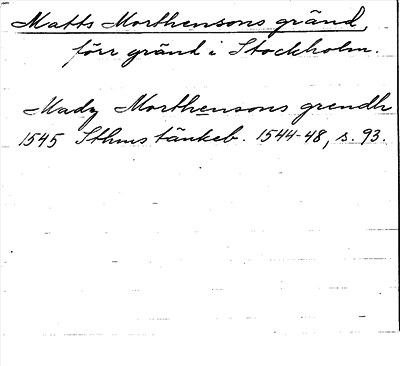 Matts Morthensons gränd,
förr gränd i Stockholm.
Madz Morthensons grendh
1545 Sthms tänkeb. 1544-48, s. 93.